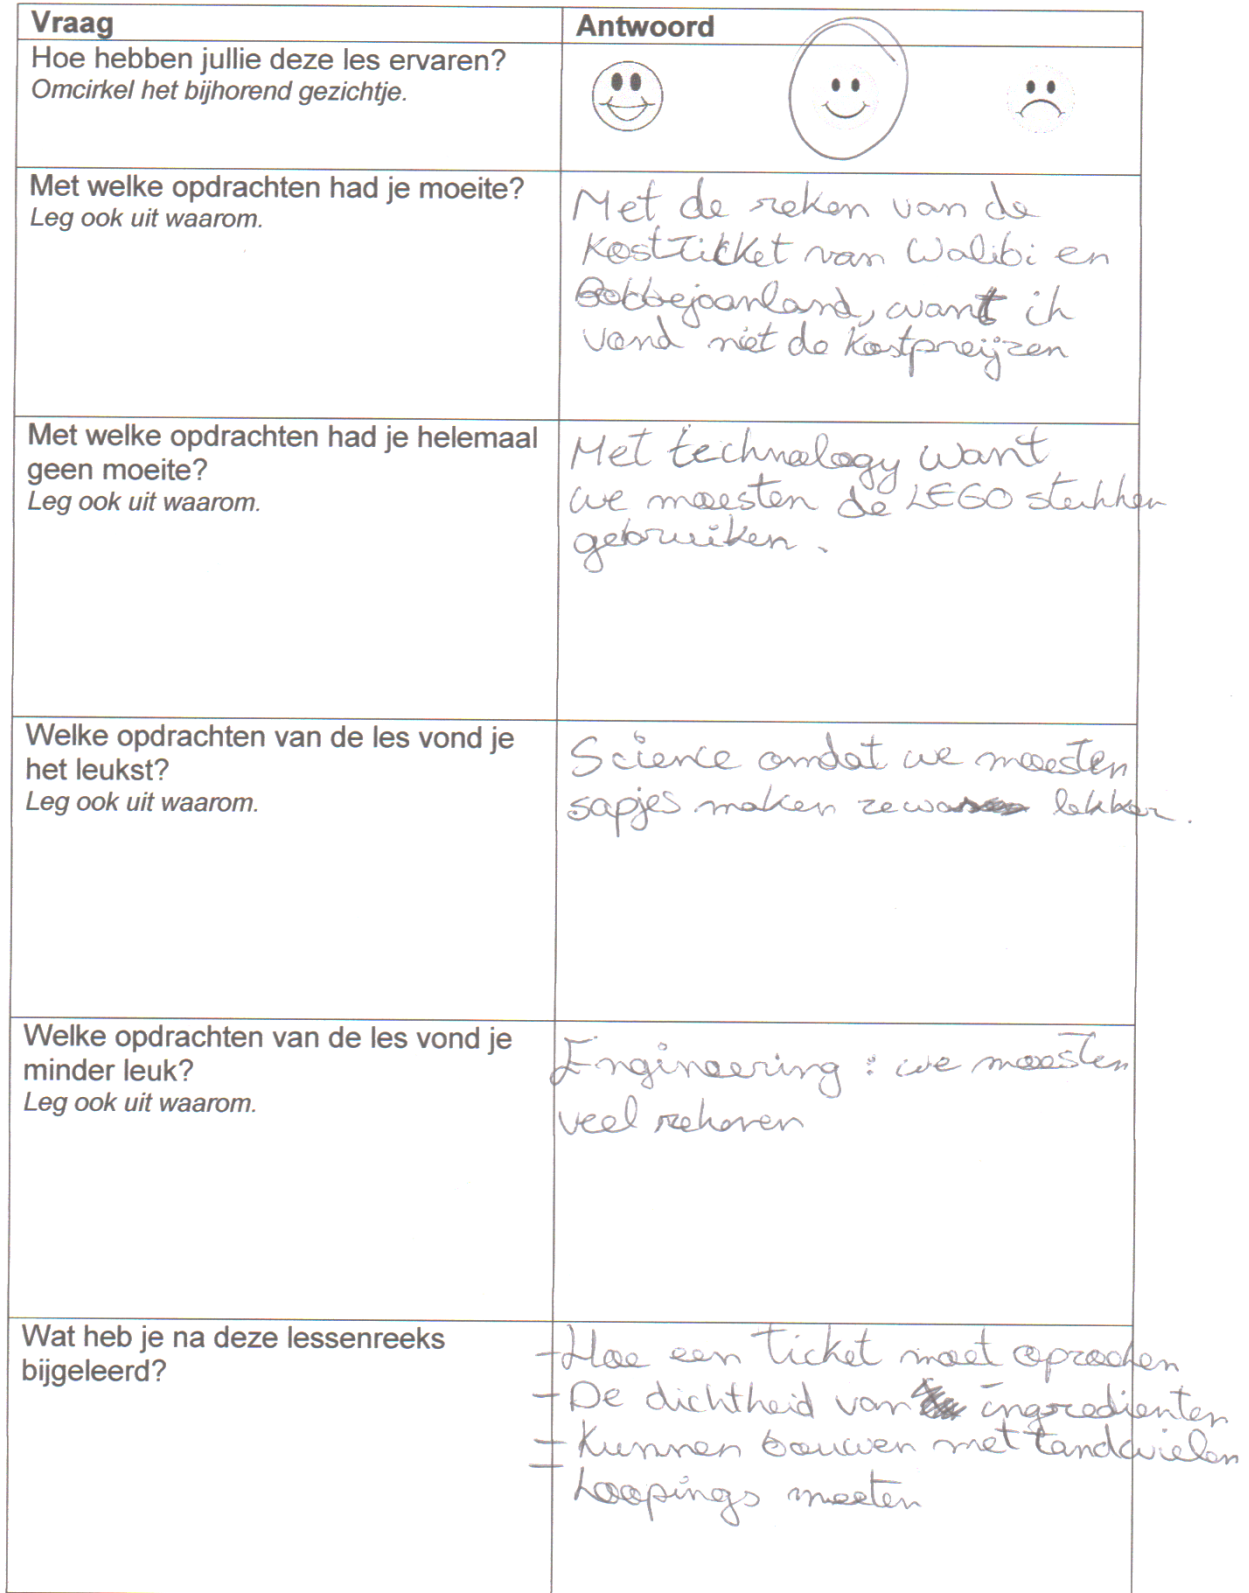 Vraag
Antwoord
Hoe hebben jullie deze les ervaren?
Omcirkel het bijhorend gezichtje.
Met welke opdrachten had je moeite?
Leg ook uit waarom.
Met de reken van de
kostticket van Walibi en
Bobbejaanland, want ik
vand niet de kostpreijzen
Met welke opdrachten had je helemaal
geen moeite?
Leg ook uit waarom.
Met technology want
we moesten de LEGO stukken
gebruiken.
Welke opdrachten van de les vond je
het leukst?
Leg ook uit waarom.
Science omdat we moesten
sapjes maken ze was lekker.
Welke opdrachten van de les vond je
minder leuk?
Leg ook uit waarom.
Engineering : we moesten
veel rekenen
Wat heb je na deze lessenreeks
bijgeleerd?
- Hoe een ticket moet opzoeken
- De dichtheid van ingredienten
- Kunnen bouwen met tandwielen
- Loopings meeten